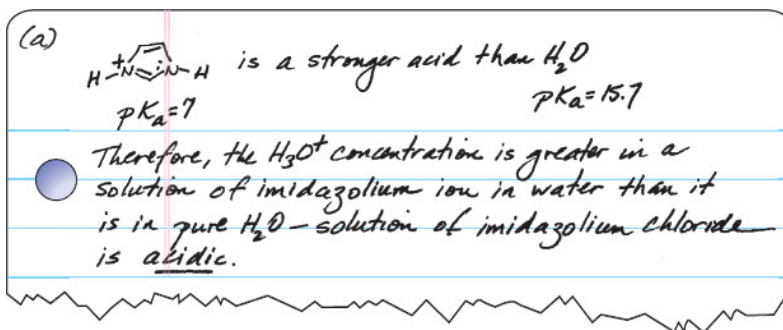 (a)
H N + N : H is a stronger acid than H₂O
pKₐ=7 pKₐ=15.7
Therefore, the H₃O⁺ concentration is greater in a
solution of imidazolium ion in water than it
is in pure H₂O – solution of imidazolium chloride
is acidic.